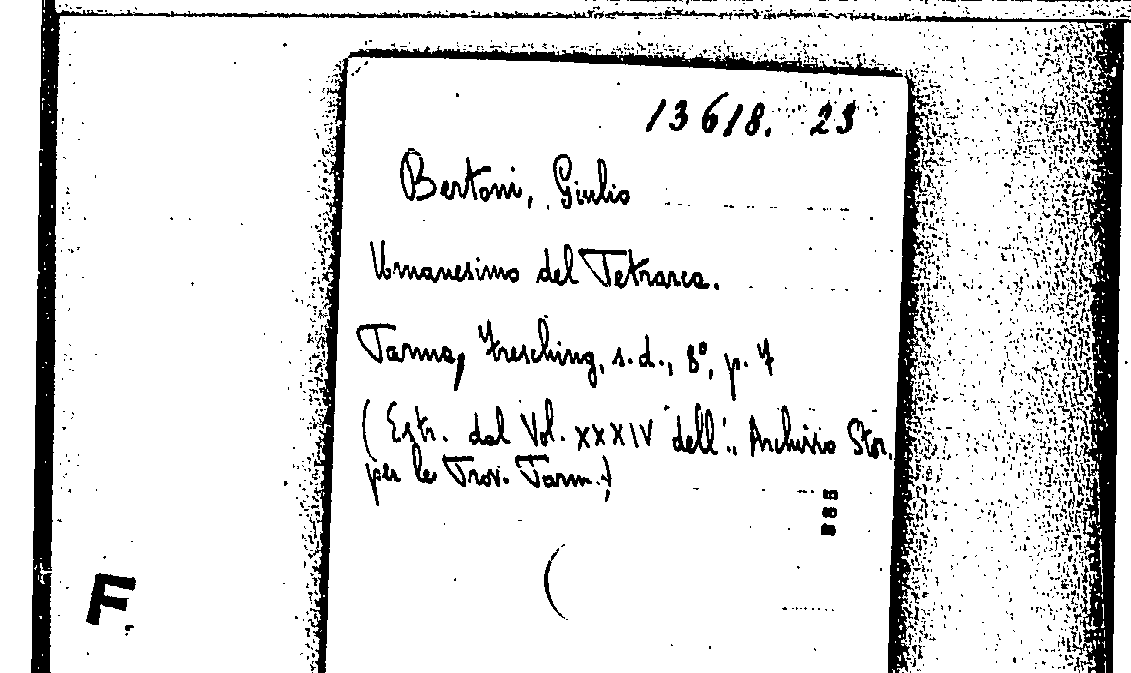 13618. 23
Bertoni, Giulio
Umanesimo del Petrarca.
Parma, Fresching, s.d., 8°, p. 7
(Estr. dal Vol. XXXIV dell'" Archivio Stor.
per le Prov. Parm.)
F.